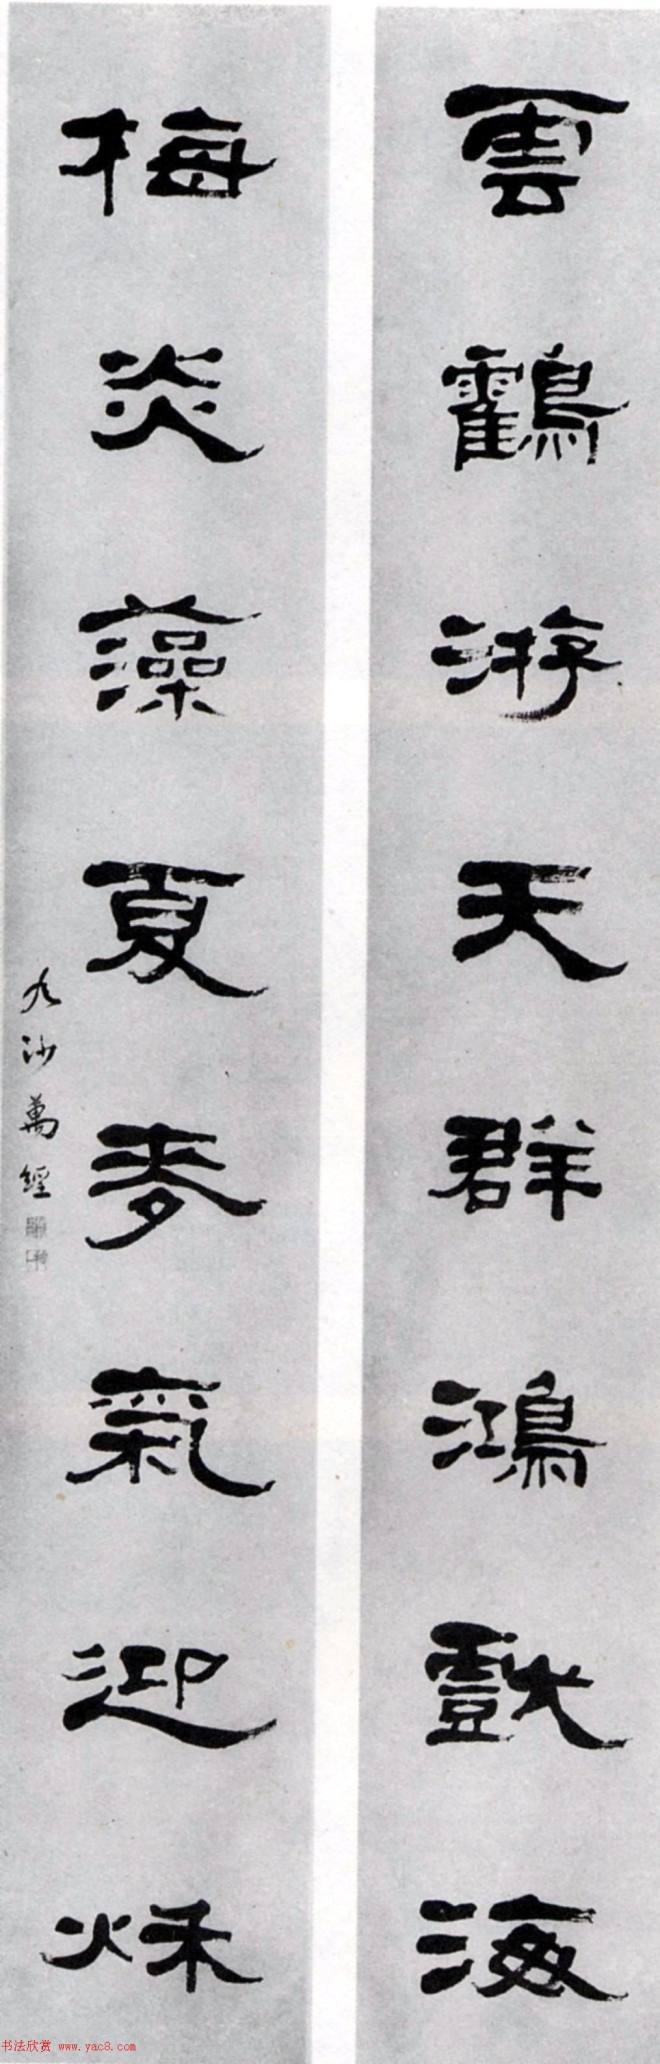 雲鶴游天群鴻戲海
梅炎藻夏麥氣迎秌
九沙萬經
书法欣赏 www.yac8.com